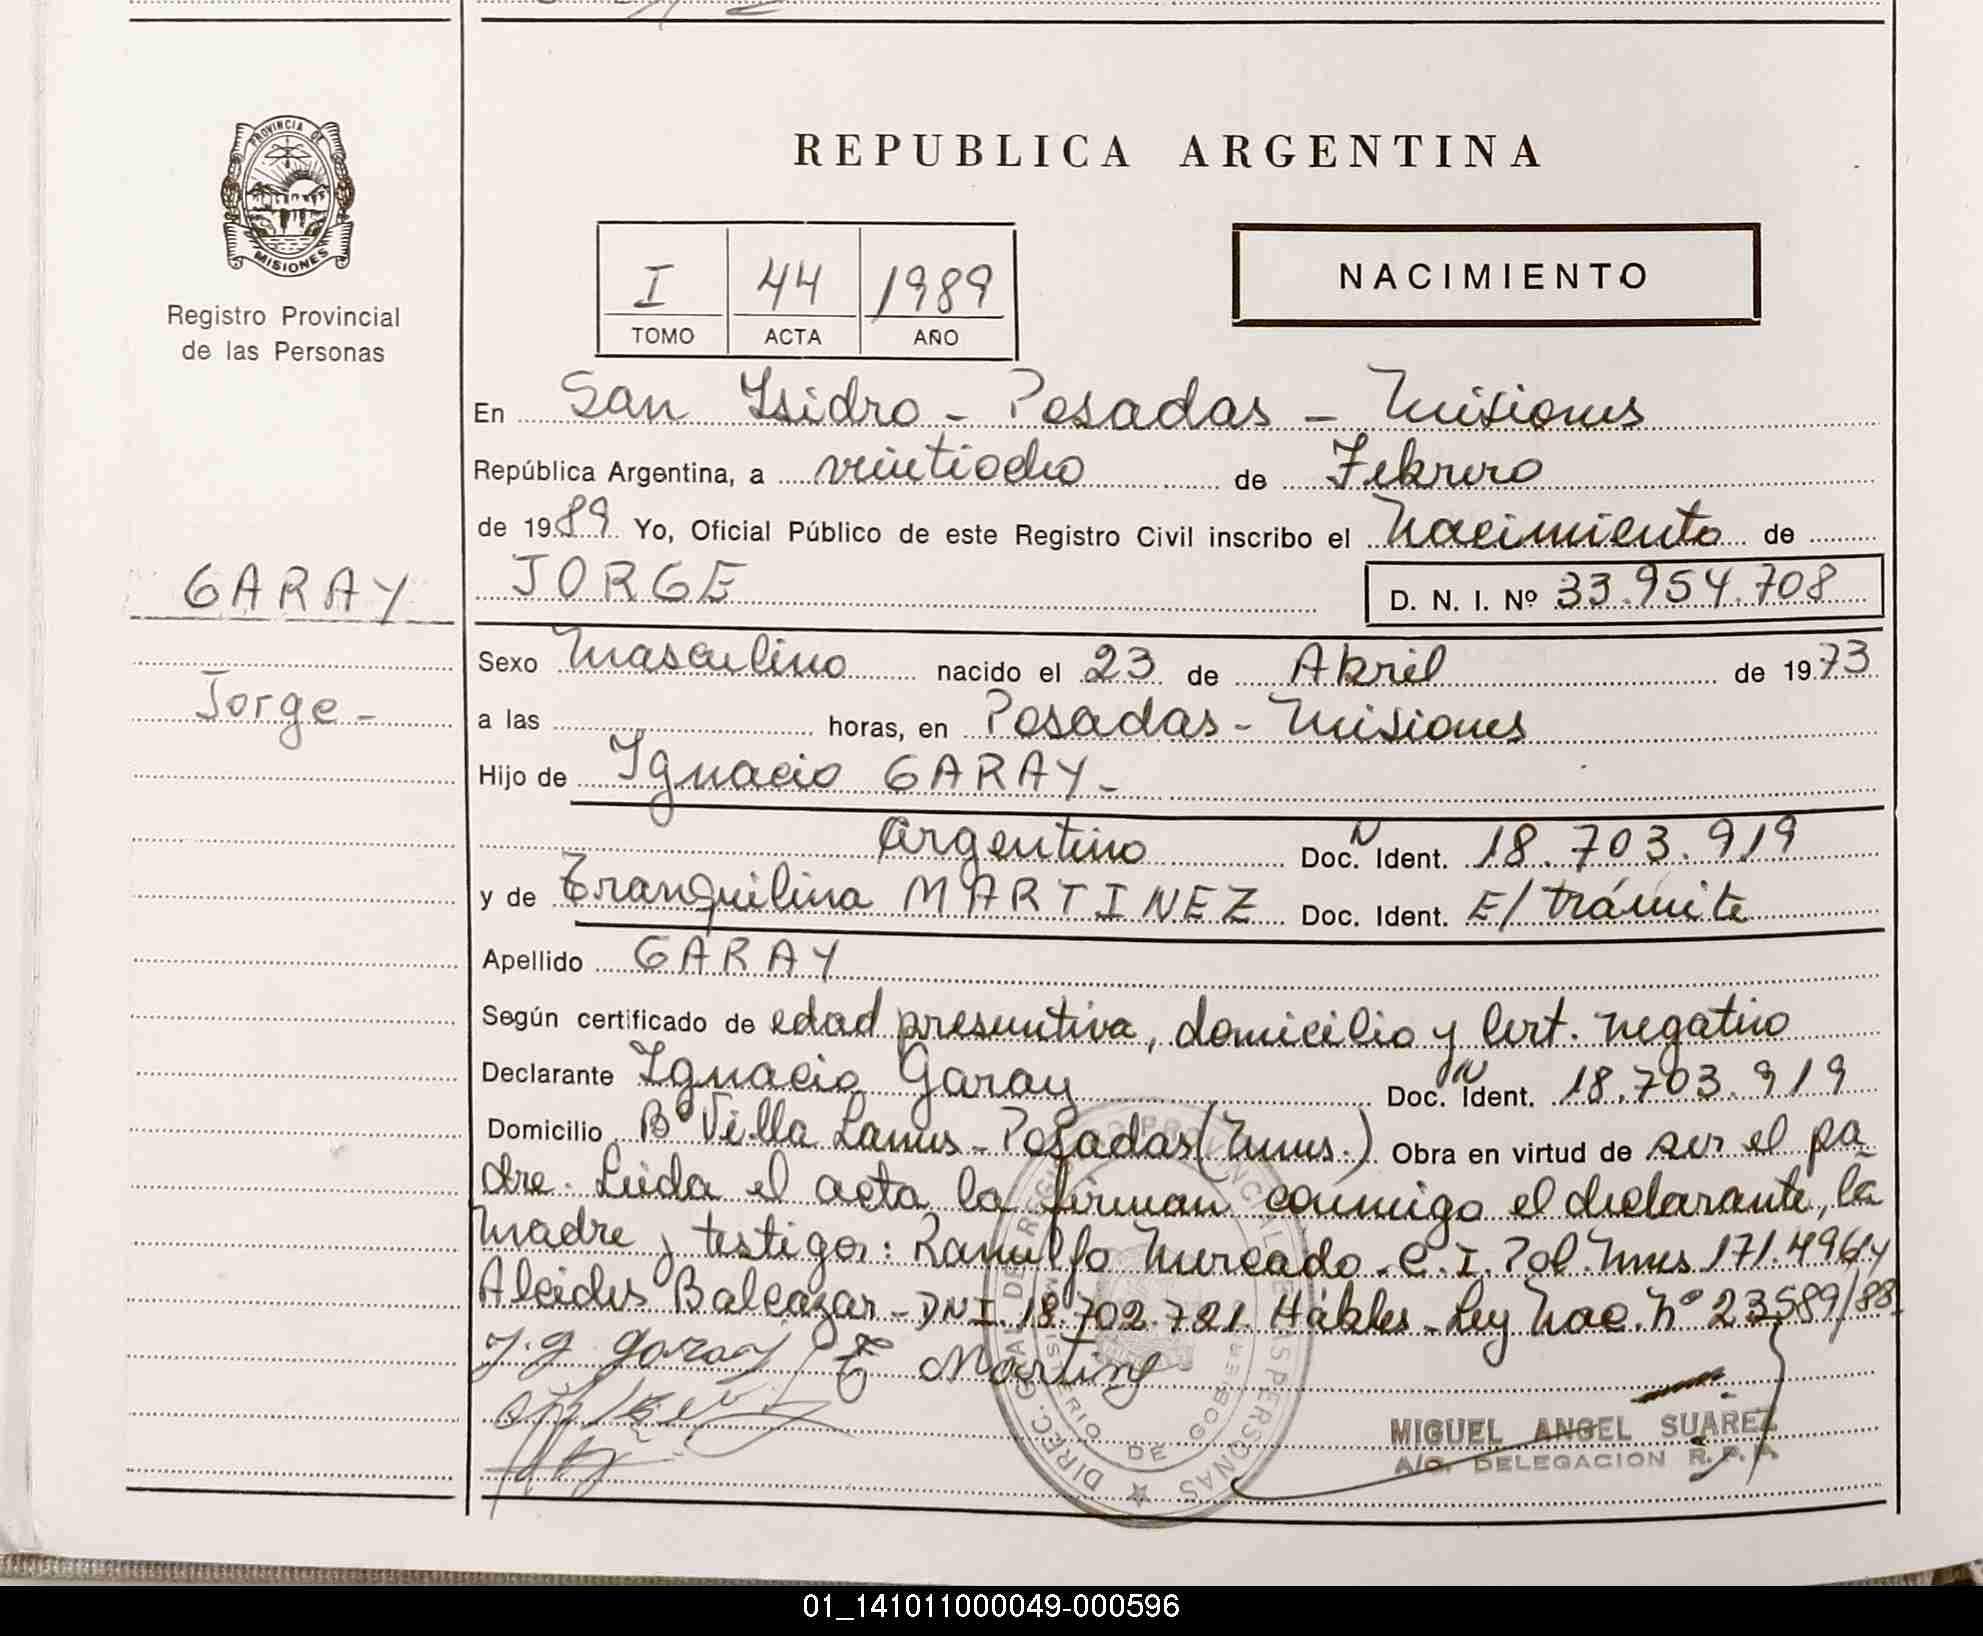 PROVINCIA DE
MISIONES
Registro Provincial
de las Personas
REPUBLICA ARGENTINA
I 44 1989
TOMO ACTA AÑO
NACIMIENTO
En San Isidro - Posadas - Misiones
República Argentina, a veintiocho de Febrero
de 1989 Yo, Oficial Público de este Registro Civil inscribo el Nacimiento de
GARAY
JORGE D. N. I. Nº 33.954.708
Sexo Masculino nacido el 23 de Abril de 1973
Jorge -
a las horas, en Posadas - Misiones
Hijo de Ignacio GARAY -
Argentino Doc. N Ident. 18.703.919
y de Tranquilina MARTINEZ Doc. Ident. E/trámite
Apellido GARAY
Según certificado de edad presuntiva, domicilio y Cert. negativo
Declarante Ignacio Garay Doc. N Ident. 18.703.919
Domicilio Bº Villa Lanus - Posadas (Mnes.) Obra en virtud de ser el pa
dre. Leída el acta la firman conmigo el declarante, la
madre y testigos: Ranulfo Mercado - C.I. Pol. Mnes 171.496 y
Alcides Balcazar - DNI. 18.702.721. Hábles - Ley Nac. Nº 23589/88.
J. g. garay T Martine
MIGUEL ANGEL SUAREZ
A/C. DELEGACION R. P. A
DIREC. GRAL DE REGISTRO PROVINCIAL DE LAS PERSONAS
MINISTERIO DE GOBIERNO
01_141011000049-000596